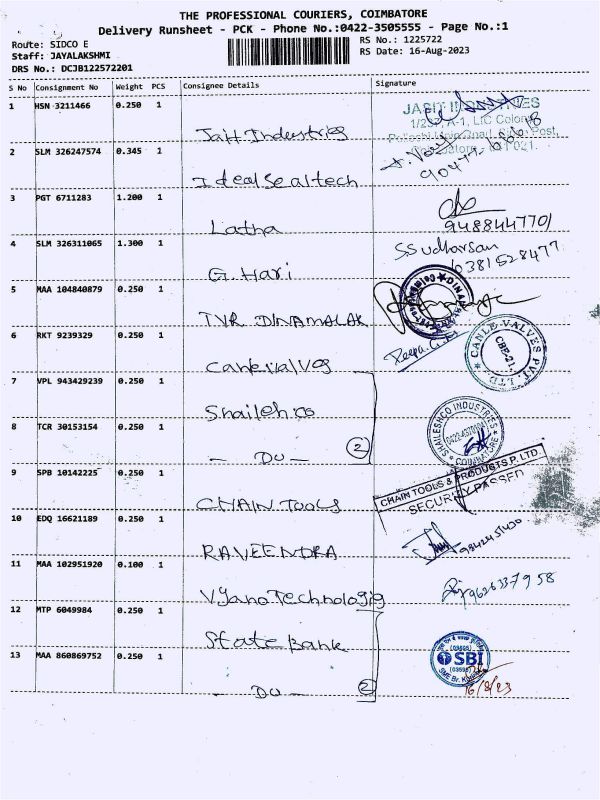 THE PROFESSIONAL COURIERS, COIMBATORE
Delivery Runsheet - PCK - Phone No.:0422-3505555 - Page No.:1
Route: SIDCO E
RS No.: 1225722
Staff: JAYALAKSHMI
RS Date: 16-Aug-2023
DRS No.: DCJB122572201
S No Consignment No Weight PCS Consignee Details Signature
1 HSN 3211466 0.250 1
Jait Industries
JASIT INDUSTRIES
1/232 A-1, LIC Colony
Post,
- 641 021.
2 SLM 326247574 0.345 1
Ideal Sealtech
3 PGT 6711283 1.200 1
Latha
9488447701
4 SLM 326311065 1.300 1
G. Hari
S.Sudharsan
5 MAA 104840879 0.250 1
TVR DINAMALAR
DINAMALAR
6 RKT 9239329 0.250 1
Canevalves
Deepa.
CANLE-VALVES PVT. LTD.
CBE-21.
7 VPL 943429239 0.250 1
Shailesh co
SHAILESHCO INDUSTRIES
COIMBATORE
8 TCR 30153154 0.250 1
- Do -
2
9 SPB 10142225 0.250 1
CHAIN TOOLS
CHAIN TOOLS & PRODUCTS P. LTD.
SECURITY PASSED
10 EDQ 16621189 0.250 1
RAVEENDRA
11 MAA 102951920 0.100 1
Vyano Technologig
9626337958
12 MTP 6049984 0.250 1
State Bank
SBI
13 MAA 860869752 0.250 1
- Do -
2
16/8/23